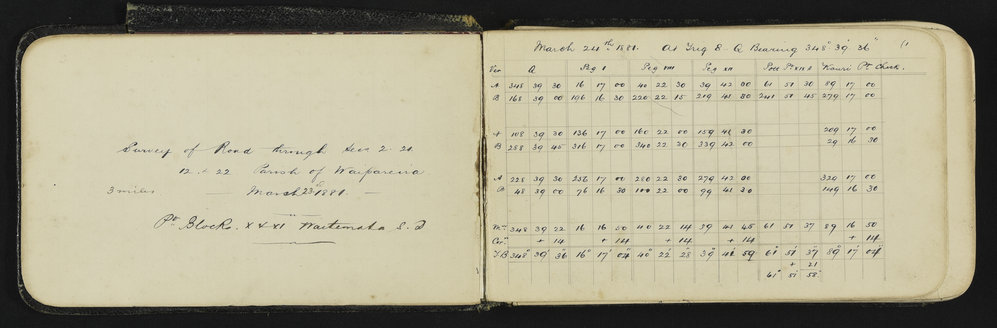 Survey of Road through Secs 2. 21
12 & 22 Parish of Waipareira
3 miles — March 23rd 1881. —
Pt Blocks. X & XI Waitemata S. D
March 24th 1881. At Trig 8 — Q Bearing 348° 39' 36" (1
Ver Q Peg 1 Peg XIII Peg XII Kauri Pt Check.
A 348 39 30 16 17 00 40 22 30 39 42 00 61 51 30 89 17 00
B 168 39 00 196 16 30 220 22 15 219 41 30 241 51 45 279 17 00
A 108 39 30 136 17 00 160 22 00 159 41 30 209 17 00
B 288 39 45 316 17 00 340 22 30 339 42 00 29 16 30
A 228 39 30 256 17 00 280 22 30 279 42 00 329 17 00
B 48 39 00 76 16 30 100 22 00 99 41 30 149 16 30
Mn 348 39 22 16 16 50 40 22 14 39 41 45 61 51 37 89 16 50
Corn + 14 + 14 + 14 + 14 + 14
T B 348° 39' 36" 16° 17' 04" 40° 22' 28" 39° 41' 59" 61° 51' 37" 89° 17' 04"
+ 21
61° 51' 58"